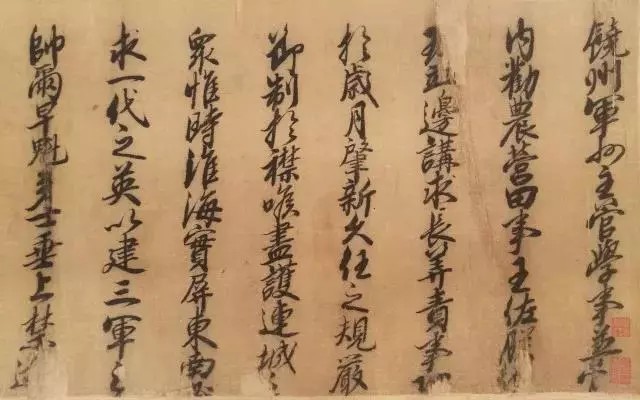 饒州軍州主管學事兼
內勸農營田事王佐朕
邊講求長筭責事
於歲月肇新久任之規嚴
節制於襟喉盡護連城之
眾惟時淮海實屏東南
求一代之英以建三軍之
帥爾早魁多士垂上禁